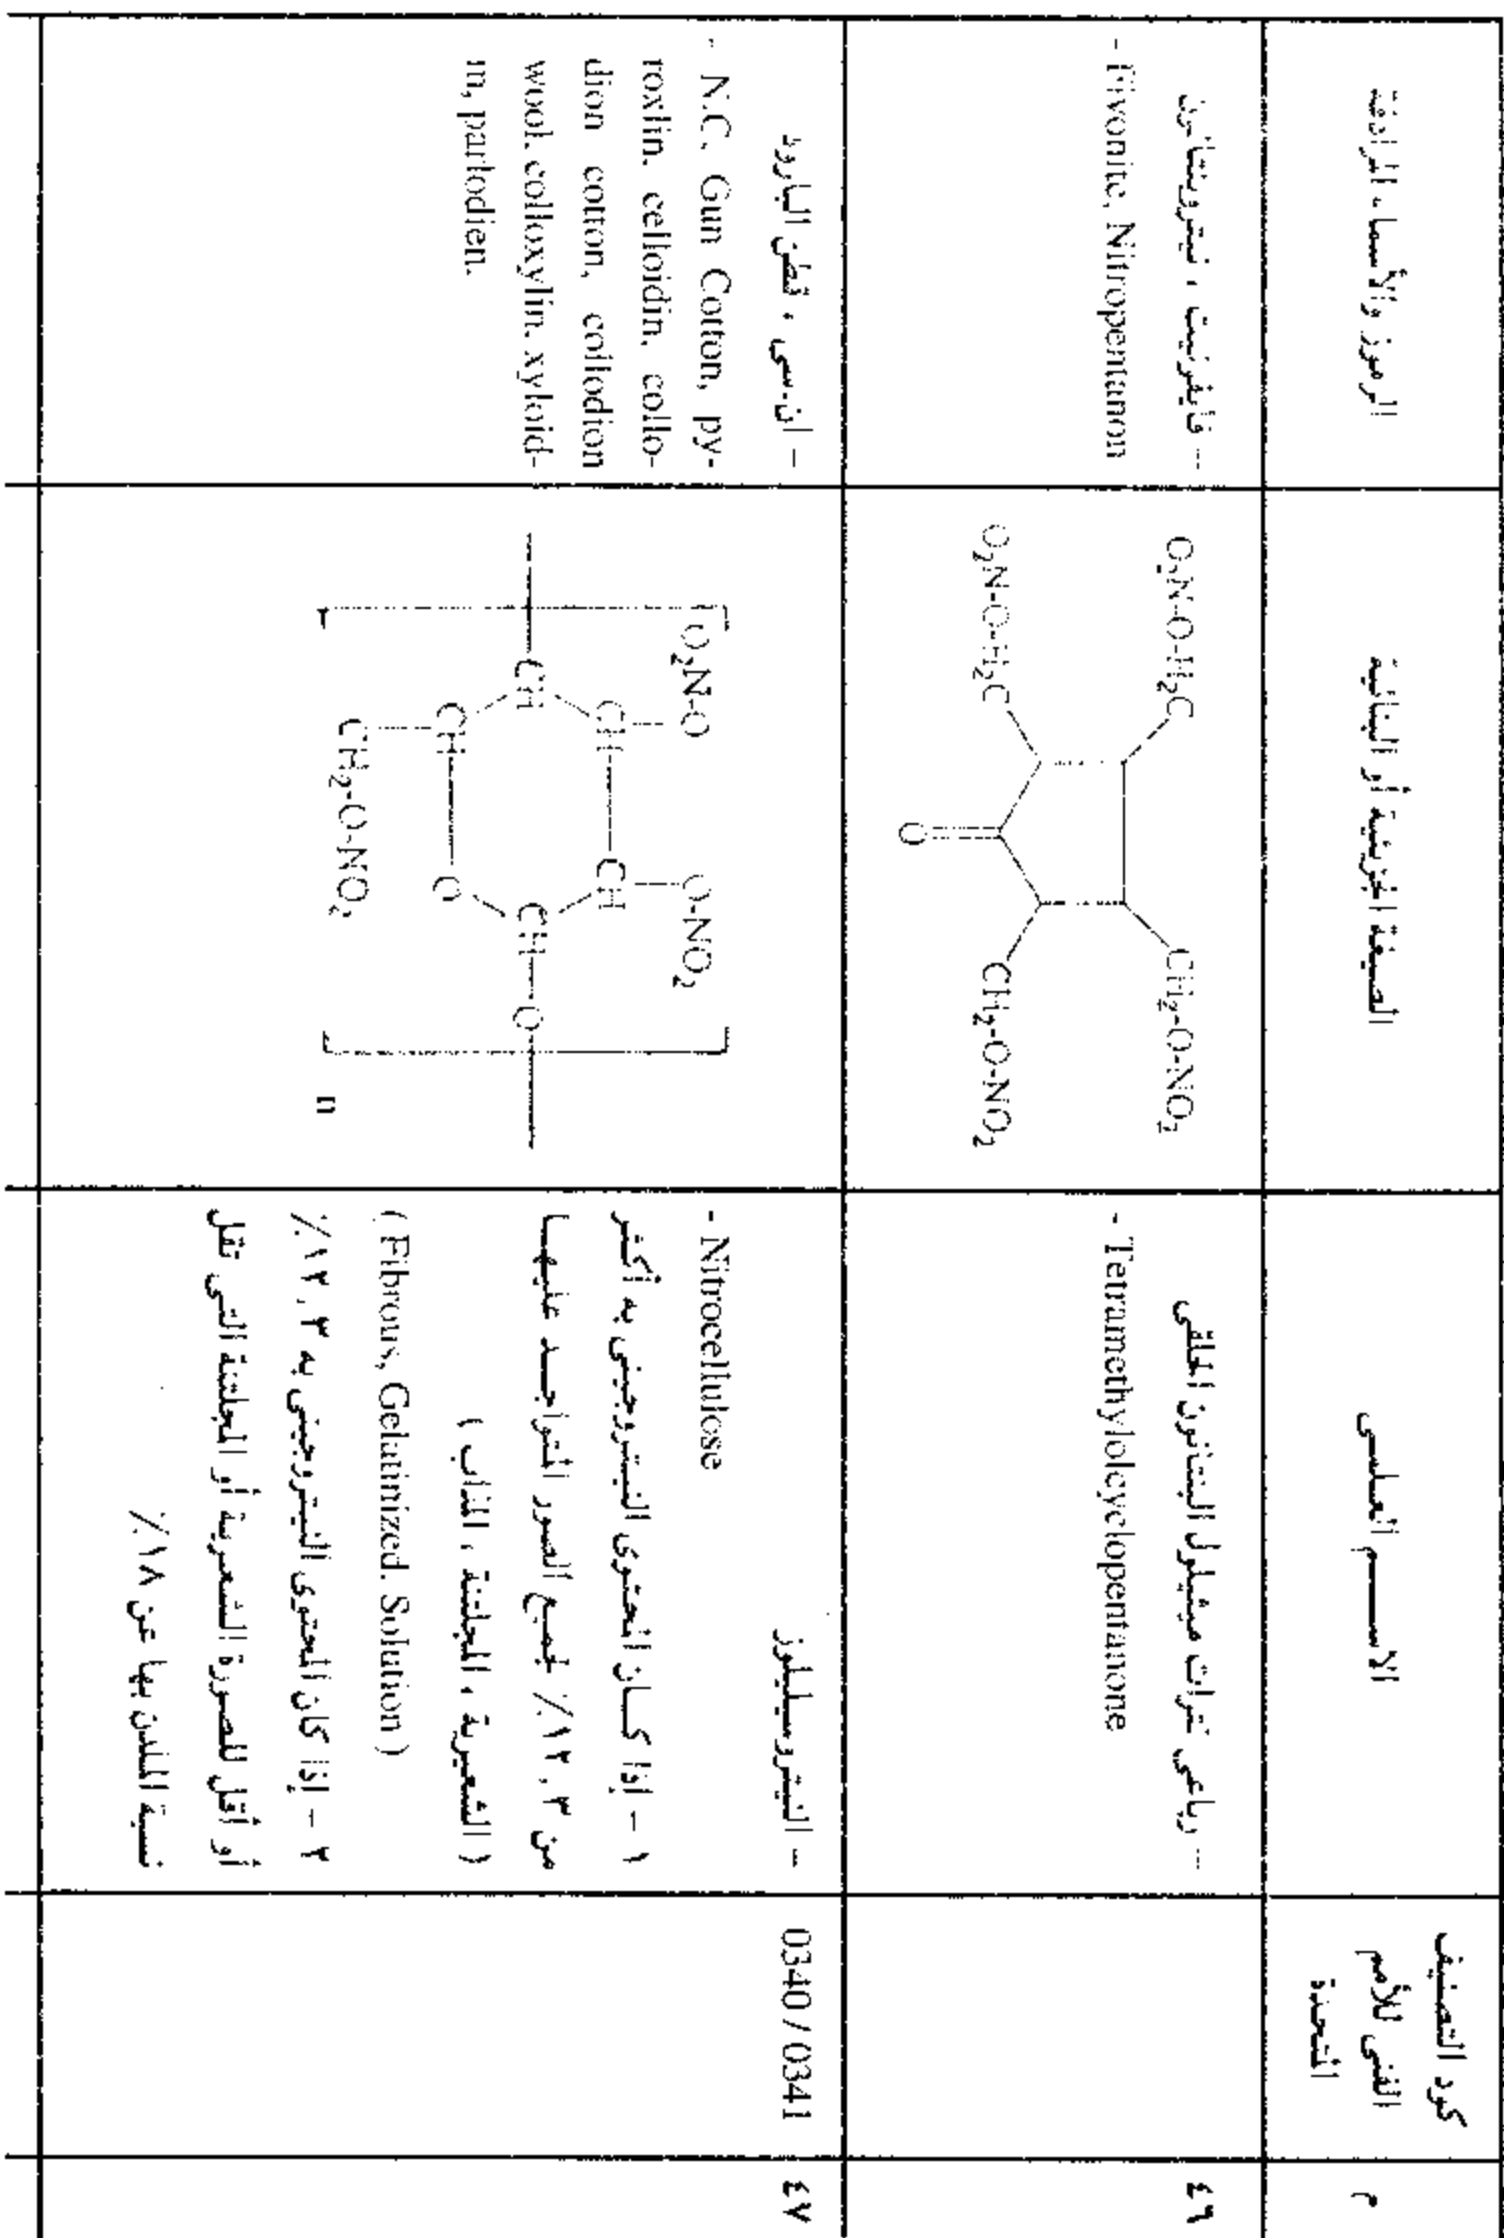 م
كود التصنيف
الفنى للأمم
المتحدة
الاســـم العلمـى
الصيغة الجزيئية أو البنائية
الرموز والأسماء المرادفة
٤٦
– رباعى نترات ميثيلول البنتانون الحلقى
- Tetramethylolcyclopentanone
O2N-O-H2C
CH2-O-NO2
O2N-O-H2C
CH2-O-NO2
O
– فايفونيت ، نيتروبنتانون
- Fivonite, Nitropentanon
٤٧
0340 / 0341
– النيتروسيليلوز
- Nitrocellulose
١ – إذا كـان المحتوى النيتروجينى به أكثر
من ١٢,٣٪ لجميع الصور المتواجد عليهـا
( الشعيرية ، المجلتنة ، المذاب )
( Fibrous, Gelatinized, Solution )
٢ – إذا كان المحتوى النيتروجينى به ١٢,٣٪
أو أقل للصورة الشعرية أو المجلتنة التى تقل
نسبة الملدن بها عن ١٨٪
O2N-O
O-NO2
CH
CH
CH
CH
O
CH
O
CH2-O-NO2
n
– ان.سى ، قطن البارود
- N.C, Gun Cotton, py-
roxlin, celloidin, collo-
dion cotton, collodion
wool, colloxylin, xyloid-
in, parlodien.